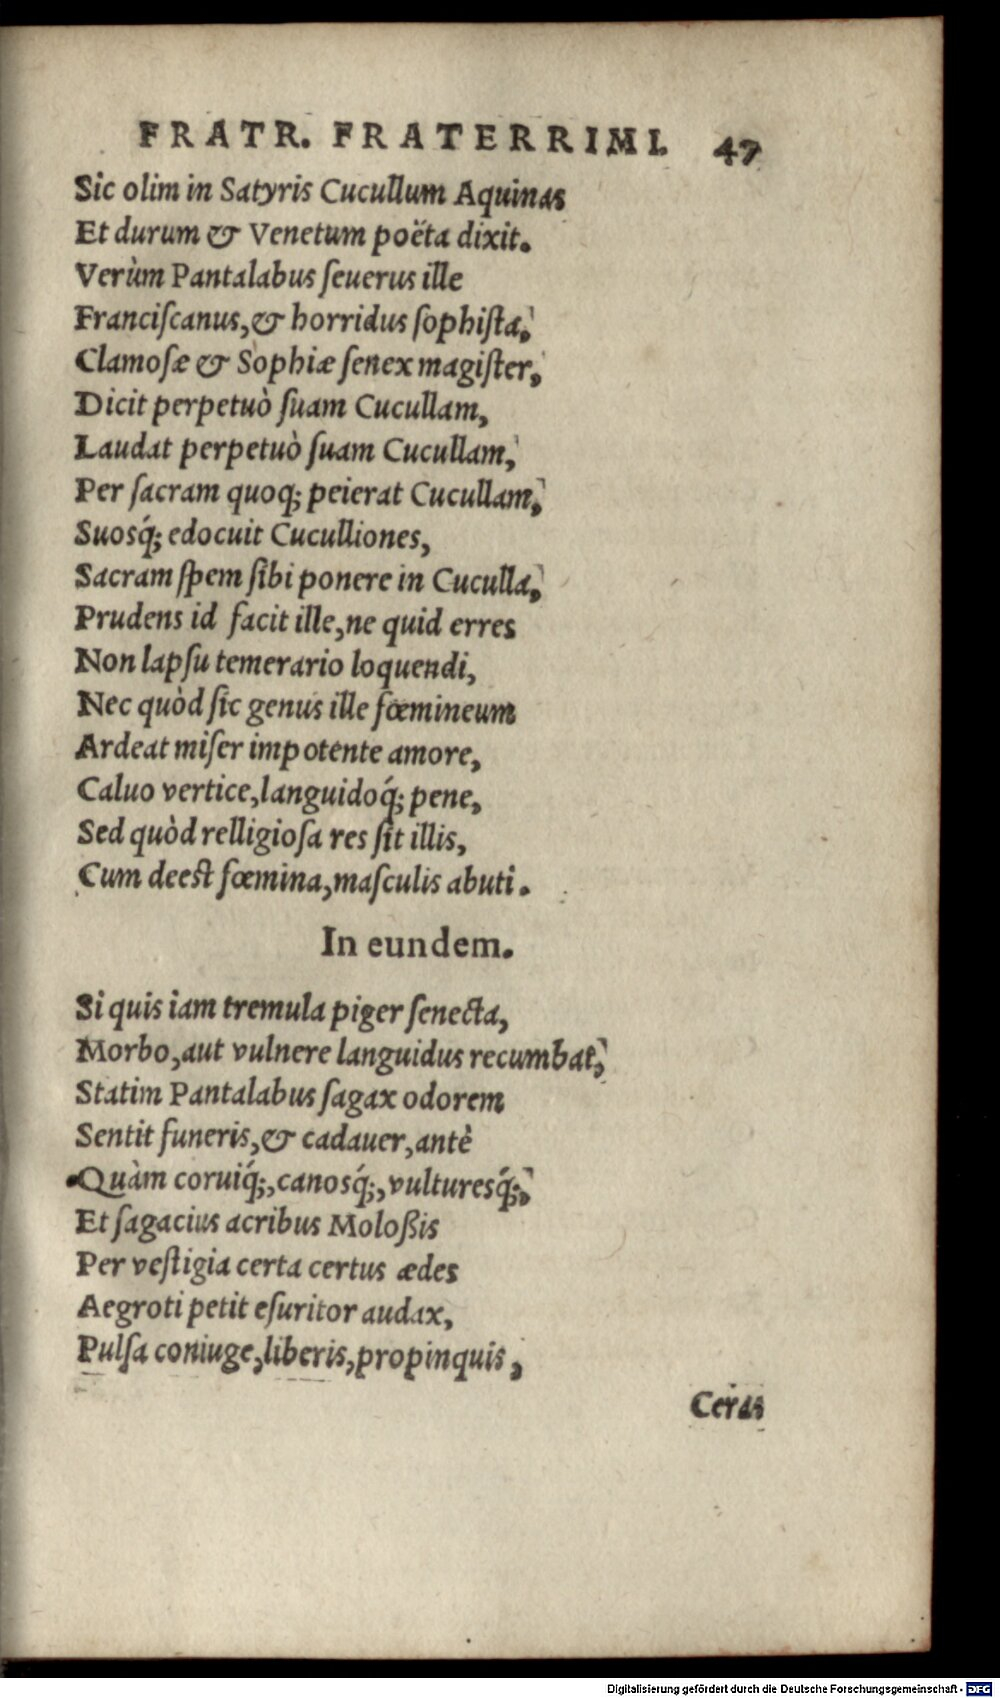 FRATR. FRATERRIMI. 47
Sic olim in Satyris Cucullum Aquinas
Et durum & Venetum poëta dixit.
Verùm Pantalabus ſeuerus ille
Franciſcanus, & horridus ſophiſta,
Clamoſæ & Sophiæ ſenex magiſter,
Dicit perpetuò ſuam Cucullam,
Laudat perpetuò ſuam Cucullam,
Per ſacram quoq; peierat Cucullam,
Suosq́; edocuit Cuculliones,
Sacram ſpem ſibi ponere in Cuculla,
Prudens id facit ille, ne quid erres
Non lapſu temerario loquendi,
Nec quòd ſic genus ille fœmineum
Ardeat miſer impotente amore,
Caluo vertice, languidoq́; pene,
Sed quòd relligioſa res ſit illis,
Cum deeſt fœmina, maſculis abuti.
In eundem.
Si quis iam tremula piger ſenecta,
Morbo, aut vulnere languidus recumbat,
Statim Pantalabus ſagax odorem
Sentit funeris, & cadauer, antè
Quàm coruiq́;, canosq́;, vulturesq́;,
Et ſagacius acribus Moloßis
Per veſtigia certa certus ædes
Aegroti petit eſuritor audax,
Pulſa coniuge, liberis, propinquis,
Ceras
Digitalisierung gefördert durch die Deutsche Forschungsgemeinschaft - DFG